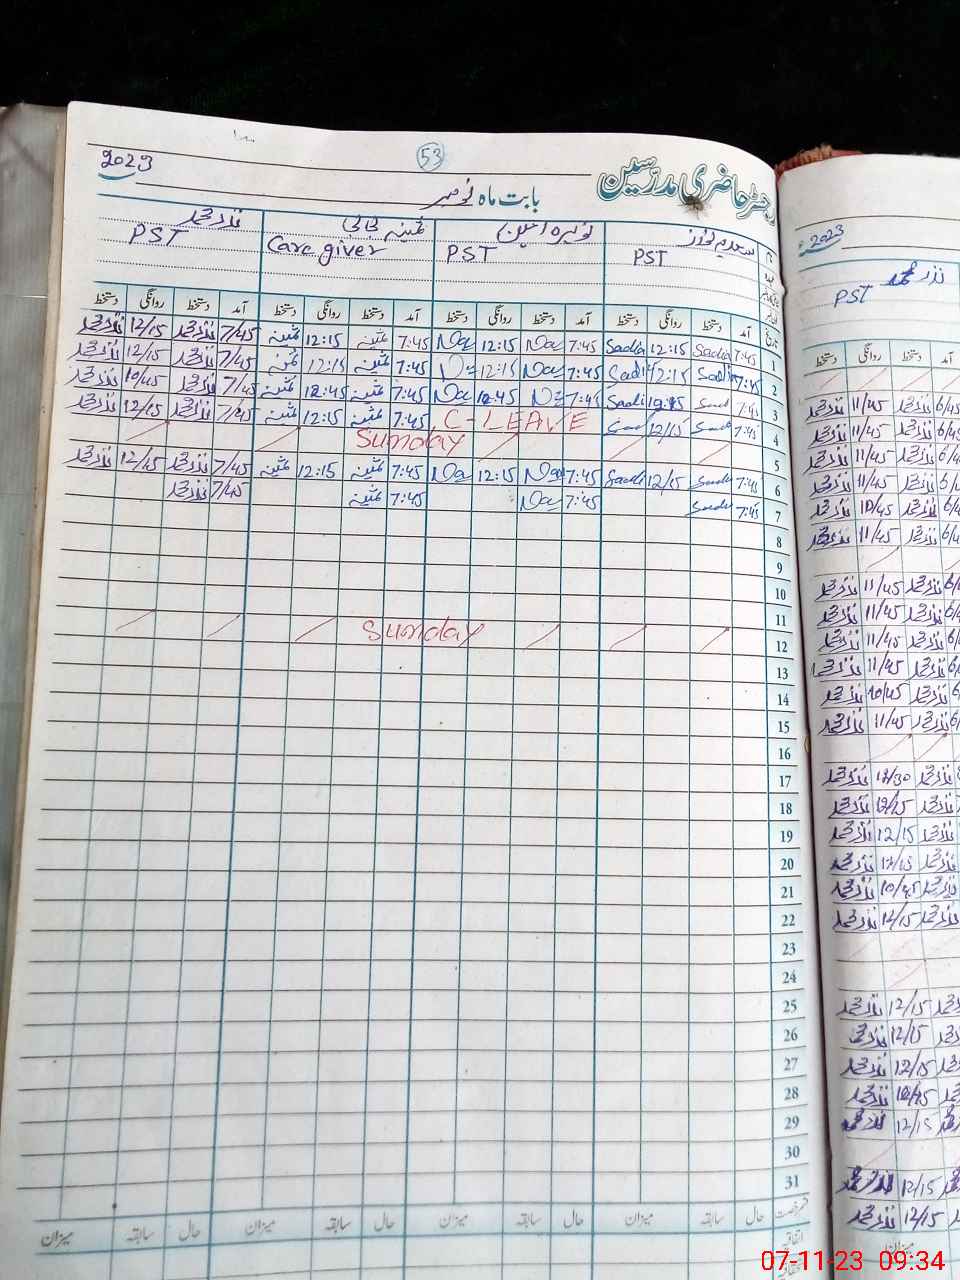 53
2023
رجسٹر حاضری مدرسین
بابت ماہ نومبر
سعدیہ نورز نویرہ امین ثمینہ نذر محمد
PST PST Care giver PST
تاریخ آمد دستخط روانگی دستخط آمد دستخط روانگی دستخط آمد دستخط روانگی دستخط آمد دستخط روانگی دستخط
1 7:45 Sadia 12:15 Sadia 7:45 12:15 7:45 ثمینہ 12:15 ثمینہ 7/45 نذر محمد 12/15 نذر محمد
2 7:45 Sadia 12:15 Sadia 7:45 12:15 7:45 ثمینہ 12:15 ثمینہ 7/45 نذر محمد 12/15 نذر محمد
3 7:45 10:45 Sadi 7:45 10:45 7:45 ثمینہ 10:45 ثمینہ 7/45 نذر محمد 10/45 نذر محمد
4 7:45 12/15 C-LEAVE 7:45 ثمینہ 12:15 ثمینہ 7/45 نذر محمد 12/15 نذر محمد
5 Sunday
6 7:45 12/15 Sadi 7:45 12:15 7:45 ثمینہ 12:15 ثمینہ 7/45 نذر محمد 12/45 نذر محمد
7 7:45 7:45 7:45 ثمینہ 7/45 نذر محمد
8
9
10
11
12 Sunday
13
14
15
16
17
18
19
20
21
22
23
24
25
26
27
28
29
30
31
قسم رخصت حال سابقہ میزان حال سابقہ میزان حال سابقہ میزان حال سابقہ میزان
اتفاقیہ
2023
نذر محمد
PST
آمد دستخط روانگی دستخط
نذر محمد 11/45 نذر محمد
نذر محمد 11/45 نذر محمد
نذر محمد 11/45 نذر محمد
نذر محمد 11/45 نذر محمد
نذر محمد 10/45 نذر محمد
نذر محمد 11/45 نذر محمد
نذر محمد 11/45 نذر محمد
نذر محمد 11/45 نذر محمد
نذر محمد 11/45 نذر محمد
نذر محمد 11/45 نذر محمد
نذر محمد 10/45 نذر محمد
نذر محمد 11/45 نذر محمد
نذر محمد 12/30 نذر محمد
نذر محمد 12/15 نذر محمد
نذر محمد 12/15 نذر محمد
نذر محمد 12/15 نذر محمد
نذر محمد 10/45 نذر محمد
نذر محمد 12/15 نذر محمد
نذر محمد 12/15 نذر محمد
نذر محمد 12/15 نذر محمد
نذر محمد 12/15 نذر محمد
نذر محمد 10/45 نذر محمد
نذر محمد 12/15 نذر محمد
نذر محمد 12/15 نذر محمد
نذر محمد 12/15 نذر محمد
میزان
07-11-23 09:34